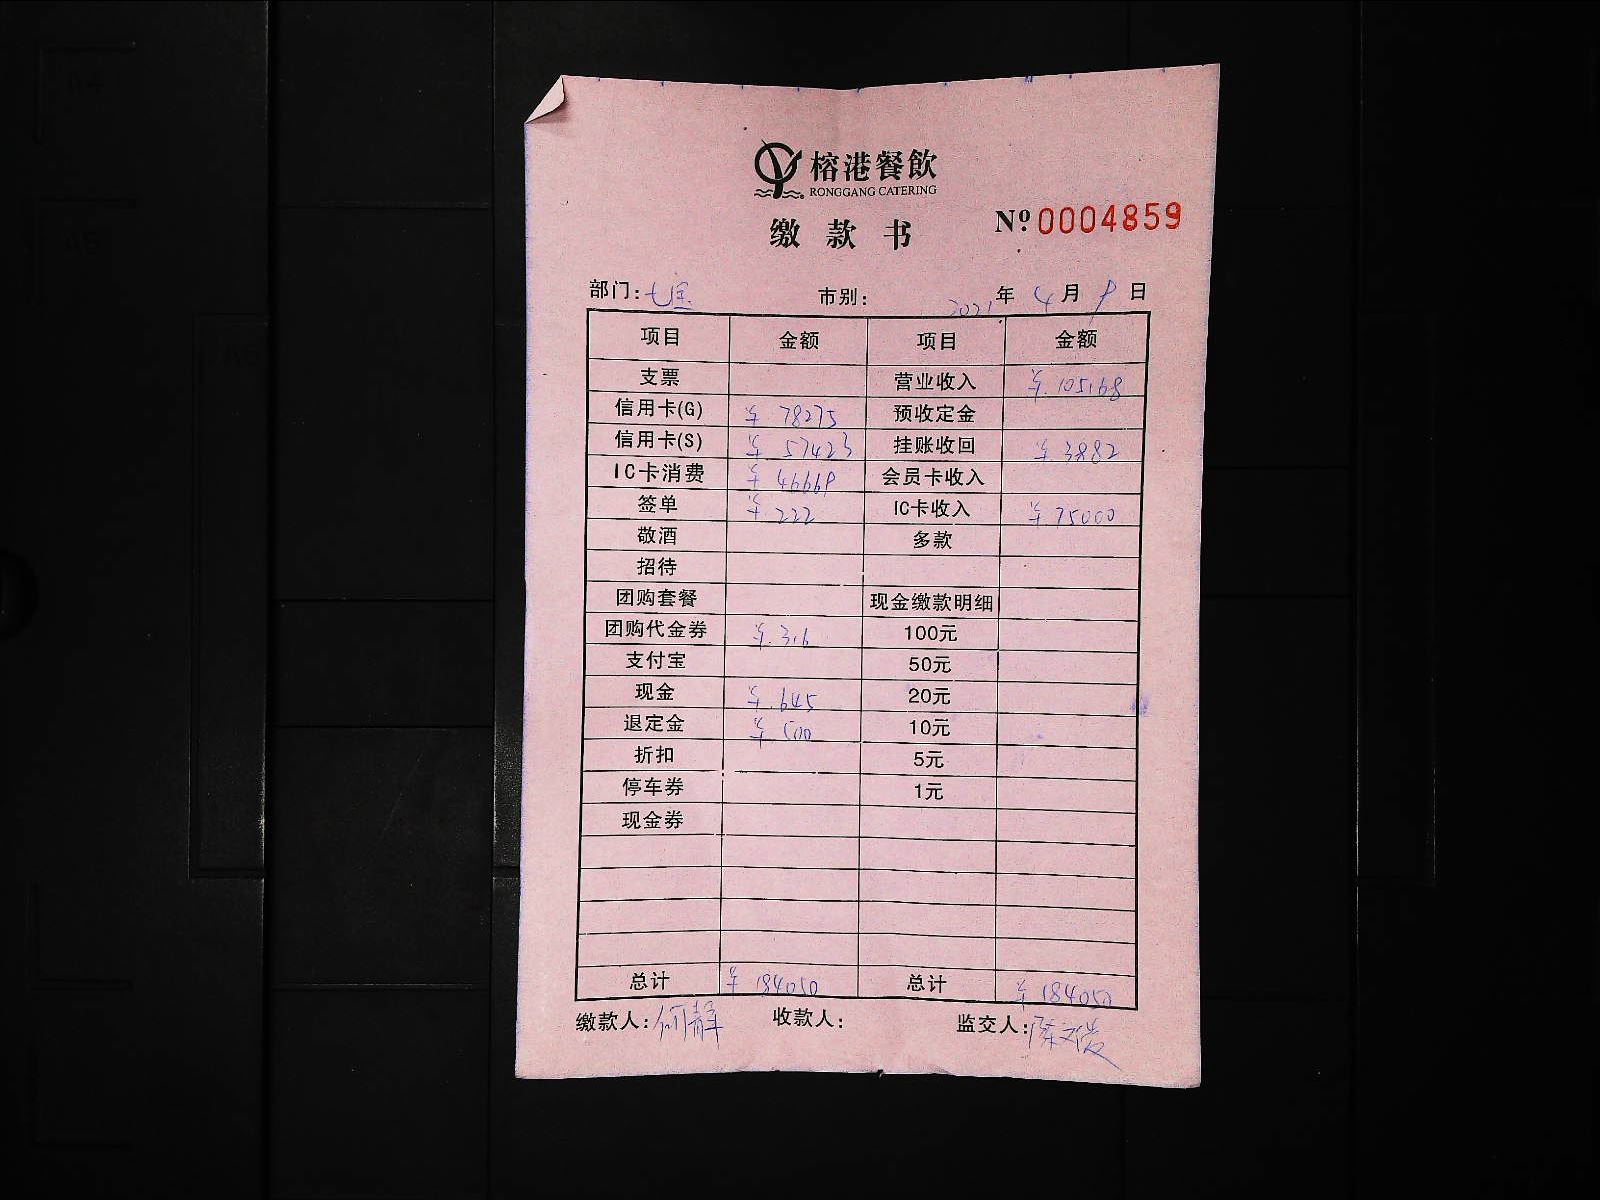 榕港餐飲
RONGGANG CATERING
缴款书 Nº:0004859
部门: 市别: 2021年4月9日
项目 金额 项目 金额
支票 营业收入 ¥105168
信用卡(G) ¥78275 预收定金
信用卡(S) ¥57423 挂账收回 ¥3882
IC卡消费 ¥46669 会员卡收入
签单 ¥222 IC卡收入 ¥75000
敬酒 多款
招待
团购套餐 现金缴款明细
团购代金券 ¥316 100元
支付宝 50元
现金 ¥645 20元
退定金 ¥500 10元
折扣 5元
停车券 1元
现金券
总计 ¥184050 总计 ¥184050
缴款人:何静 收款人: 监交人: